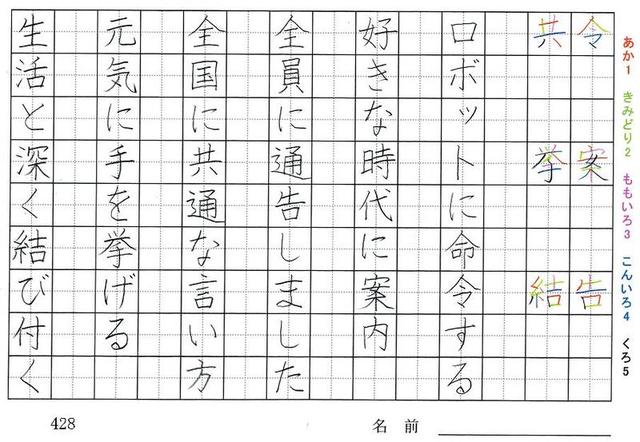 あか1 きみどり2 ももいろ3 こんいろ4 くろ5
令 案 告
共 挙 結
ロボットに命令する
好きな時代に案内
全員に通告しました
全国に共通な言い方
元気に手を挙げる
生活と深く結び付く
428
名前